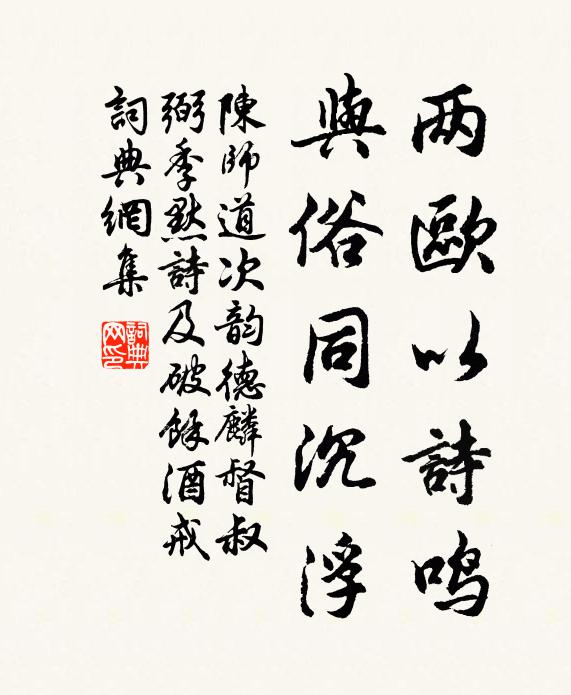 两歐以詩鸣
與俗同沉浮
陳師道次韵德麟督叔
弼季默詩及破餘酒戒
詞典網集
詞典网印